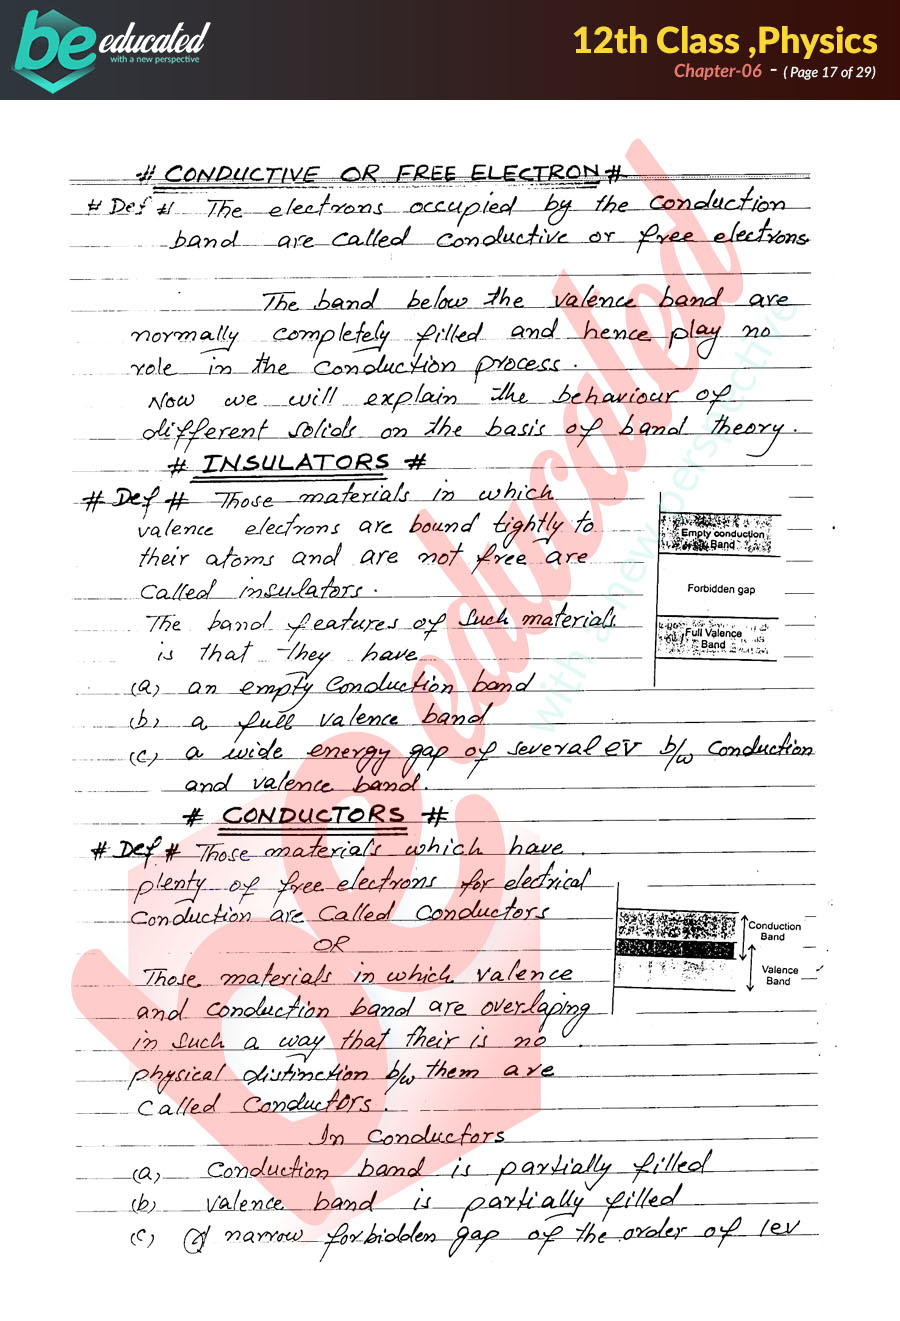 be educated
with a new perspective
12th Class ,Physics
Chapter-06 - ( Page 17 of 29)
# CONDUCTIVE OR FREE ELECTRON #
# Def # The electrons occupied by the conduction
band are called conductive or free electrons.
The band below the valence band are
normally completely filled and hence play no
role in the conduction process.
Now we will explain the behaviour of
different solids on the basis of band theory.
# INSULATORS #
# Def # Those materials in which
valence electrons are bound tightly to
their atoms and are not free are
called insulators.
The band features of such materials
is that they have
(a) an empty conduction band
(b) a full valence band
(c) a wide energy gap of several eV b/w conduction
and valence band.
Empty conduction
Band
Forbidden gap
Full Valence
Band
# CONDUCTORS #
# Def # Those materials which have
plenty of free electrons for electrical
Conduction are Called Conductors
OR
Those materials in which valence
and conduction band are overlaping
in such a way that their is no
physical distinction b/w them are
Called Conductors.
Conduction
Band
Valence
Band
In Conductors
(a) Conduction band is partially filled
(b) valence band is partially filled
(c) a narrow forbidden gap of the order of 1ev
be educated
with a new perspective